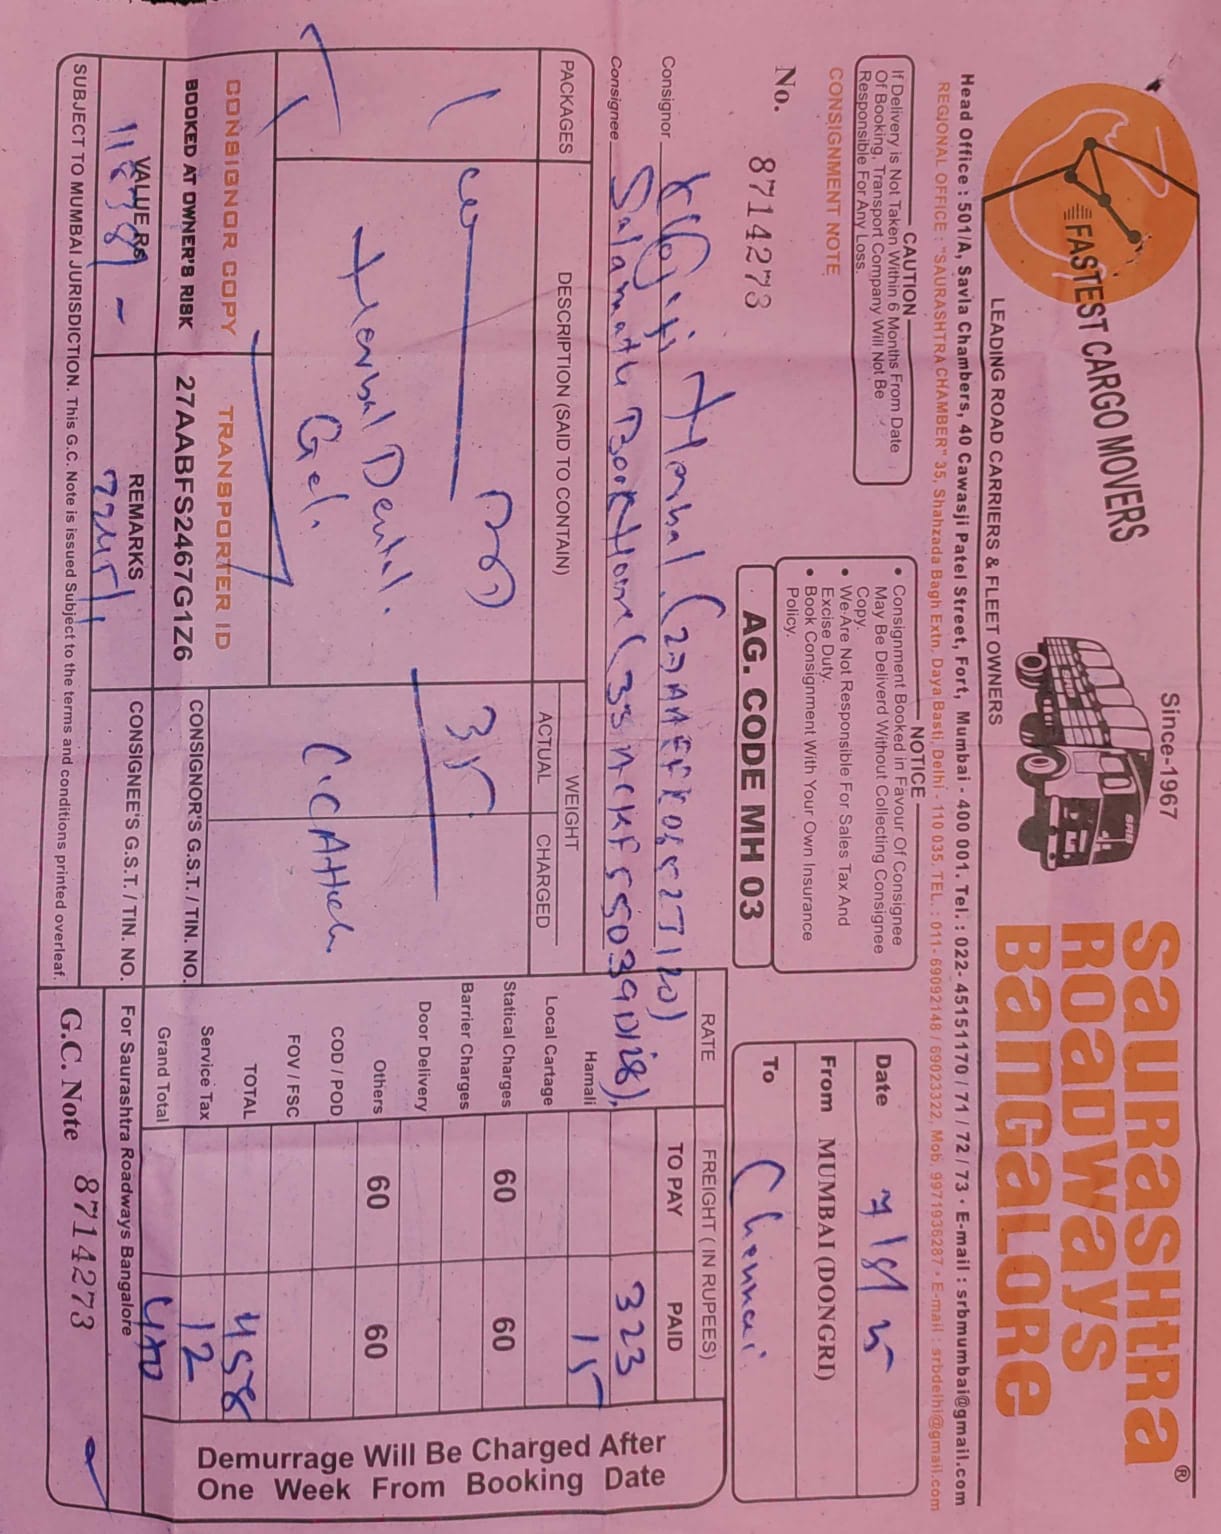 FASTEST CARGO MOVERS
Since-1967
SRB
SaURaSHtRa ®
ROaDWays
BaNGaLORe
LEADING ROAD CARRIERS & FLEET OWNERS
Head Office : 501/A, Savla Chambers, 40 Cawasji Patel Street, Fort, Mumbai - 400 001. Tel. : 022- 45151170 / 71 / 72 / 73 • E-mail : srbmumbai@gmail.com
REGIONAL OFFICE : "SAURASHTRA CHAMBER" 35, Shahzada Bagh Extn. Daya Basti, Delhi - 110 035. TEL. : 011- 69092148 / 69023322, Mob. 9971936287 • E-mail : srbdelhi@gmail.com
CAUTION
If Delivery is Not Taken Within 6 Months From Date
Of Booking, Transport Company Will Not Be
Responsible For Any Loss.
CONSIGNMENT NOTE
No. 8714273
NOTICE
• Consignment Booked in Favour Of Consignee
May Be Deliverd Without Collecting Consignee
Copy.
• We Are Not Responsible For Sales Tax And
Excise Duty.
• Book Consignment With Your Own Insurance
Policy.
AG. CODE MH 03
Date
From MUMBAI (DONGRI)
To Chennai
Consignor Herbal
Consignee Salamath Book House
PACKAGES
DESCRIPTION (SAID TO CONTAIN)
WEIGHT
ACTUAL
CHARGED
RATE
FREIGHT ( IN RUPEES)
TO PAY
PAID
1
35
Herbal Dental
Gel.
C.C Attach
323
Hamali 15
Local Cartage
Statical Charges 60 60
Barrier Charges
Door Delivery
Others 60 60
COD / POD
FOV / FSC
TOTAL 458
Service Tax 12
Grand Total
CONSIGNOR COPY
TRANSPORTER ID
BOOKED AT OWNER'S RISK
27AABFS2467G1Z6
CONSIGNOR'S G.S.T. / TIN. NO.
VALUE RS
REMARKS
CONSIGNEE'S G.S.T. / TIN. NO.
For Saurashtra Roadways Bangalore
Demurrage Will Be Charged After
One Week From Booking Date
SUBJECT TO MUMBAI JURISDICTION. This G.C. Note is issued Subject to the terms and conditions printed overleaf.
G.C. Note 8714273